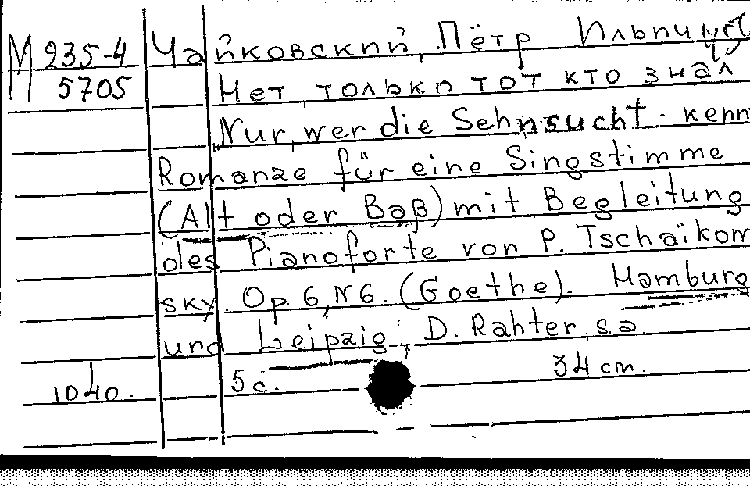 М 935-4 Чайковский, Пётр Ильич
5705 Нет, только тот кто знал
Nur, wer die Sehnsucht kenn
Romanze für eine Singstimme
(Alt oder Baß) mit Begleitung
des Pianoforte von P. Tschaïkow
sky. Op. 6, N 6. (Goethe). Hamburg
und Leipzig, D. Rahter s.a.
5 с. 34 cm.
1040.